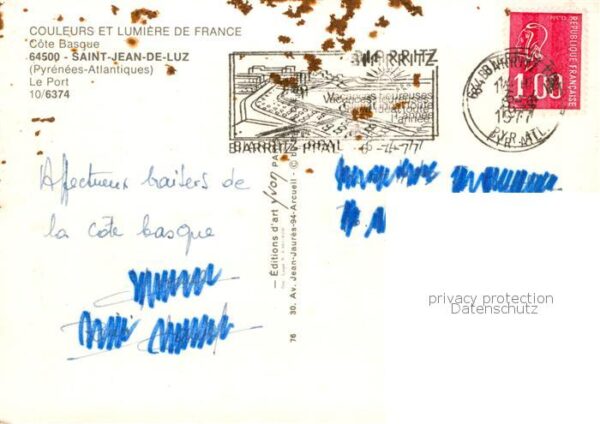 COULEURS ET LUMIÈRE DE FRANCE
Côte Basque
64500 - SAINT-JEAN-DE-LUZ
(Pyrénées-Atlantiques)
Le Port
10/6374
BIARRITZ
Vacances heureuses
toute
l'année
BIARRITZ PPAL
1977
PYR. ATL.
RÉPUBLIQUE FRANÇAISE
1.00
Affectueux baisers de
la côte basque
— Éditions d'art yvon
30. Av. Jean-Jaurès-94-Arcueil - ©
76
privacy protection
Datenschutz